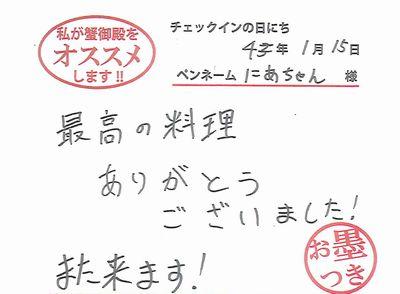 私が蟹御殿を
オススメ
します!!
チェックインの日にち
年 1月 15日
ペンネーム にあちゃん 様
最高の料理
ありがとう
ございました!
また来ます!
お墨
つき